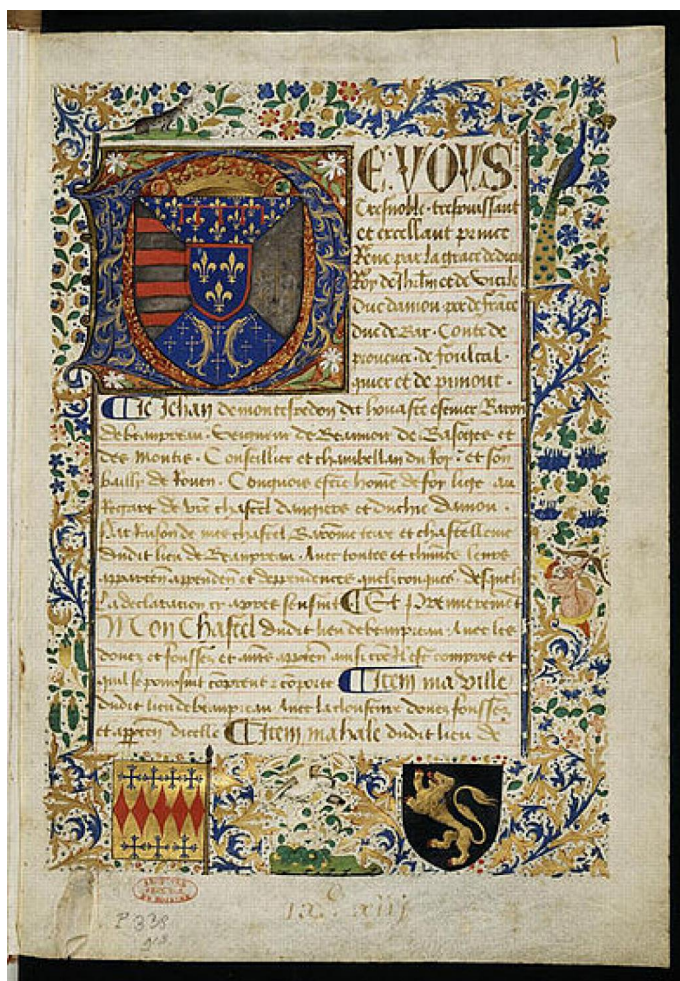 1
DE VOUS
Tresnoble · trespuissant
et excellant prince
Rene par la grace de dieu
Roy de Jhrlm et de Sicile
Duc damou · per de france
duc de Bar · Conte de
prouence · de foulcal ·
quier et de pimont ·
Je Jehan de montespedon dit houaste escuier Baron
de beaupreau · Seigneur de Beamont de Basoges et
des Montis · Conseillier et chambellan du Roy · et son
bailly de Rouen · Congnois estre home de foy lige au
Regart de vre chastel dangiers et duchie damou ·
Par Raison de mes chastel Baronie terre et chastellenie
dudit lieu de Beaupreau · Auec toutes et
appendences et deppendences quelzconques · desquelz
la declaration cy apres sensuit Et premierement
Mon Chastel dudit lieu de beaupreau · Auec les
douez et foussez et
Item ma ville
dudit lieu de beaupreau Auec la clousture douez foussez
et dicelle Item ma hale dudit lieu de
P 338